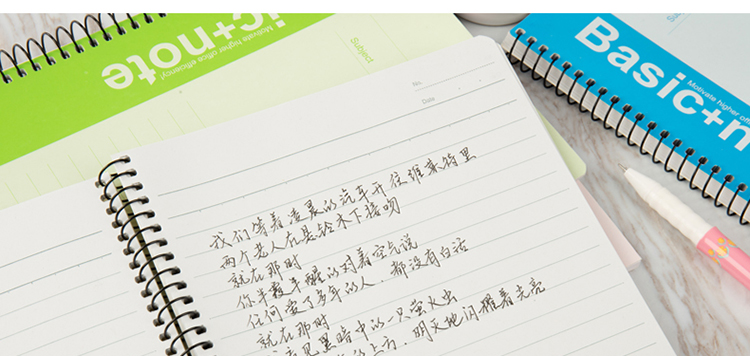 ic+note
Motivate higher office efficiency!
Subject
Basic+n
Motivate higher offi
Su
No.
Date
我们等着凌晨的汽车开往维莱特里
两个老人在悬铃木下接吻
就在那时
你半睡半醒的对着空气说
任何爱了多年的人，都没有白活
就在那时
见黑暗中的一只萤火虫
的上方，明灭地闪耀着光亮